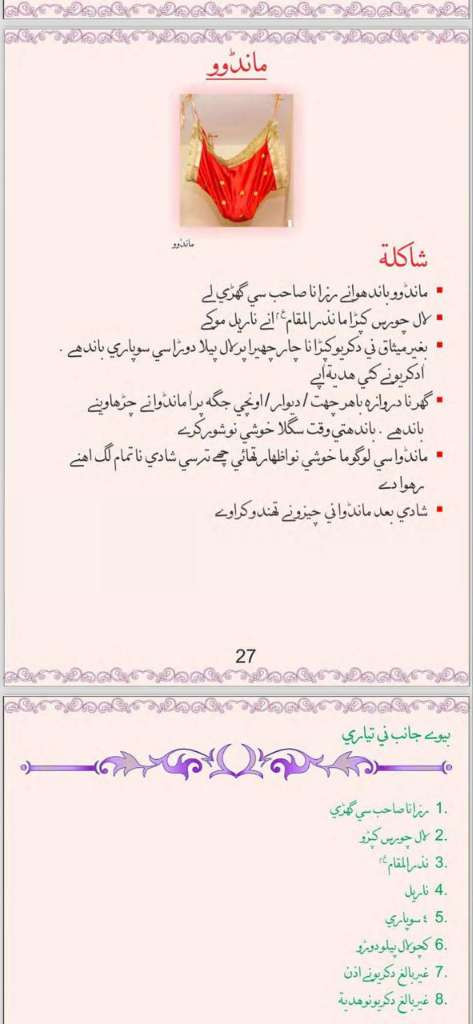 مانڈوو
مانڈوو
شاكلة
مانڈوو باندهوانے رزا نا صاحب سي گھڑي لے
لال چورس كپڑا ما نذر المقام ع م انے ناريل موكے
بغير ميثاق ني دكريو كپڑا نا چار چھيرا پر لال پيلا دوڑا سي سوپاري باندھے .
ا دكريو نے كئي هدية اٰپے
گھر نا دروازه باهر چھت / ديوار / اونچي جگه پر اْ مانڈوا نے چڑھاوينے
باندھے . باندھتي وقت سگلا خوشي نو شور كرے
مانڈوا سي لوگو ما خوشي نو اظهار تھائي چھے تر سي شادي نا تمام لگ اهنے
رهوا دے
شادي بعد مانڈوا ني چيزو نے تھندو كراوے
27
بيوے جانب ني تياري
1. رزا نا صاحب سي گھڑي
2. لال چورس كپڑو
3. نذر المقام ع م
4. ناريل
5. ٤ سوپاري
6. كچو لال پيلو دوڑو
7. غير بالغ دكريو نے اذن
8. غير بالغ دكريو نو هدية